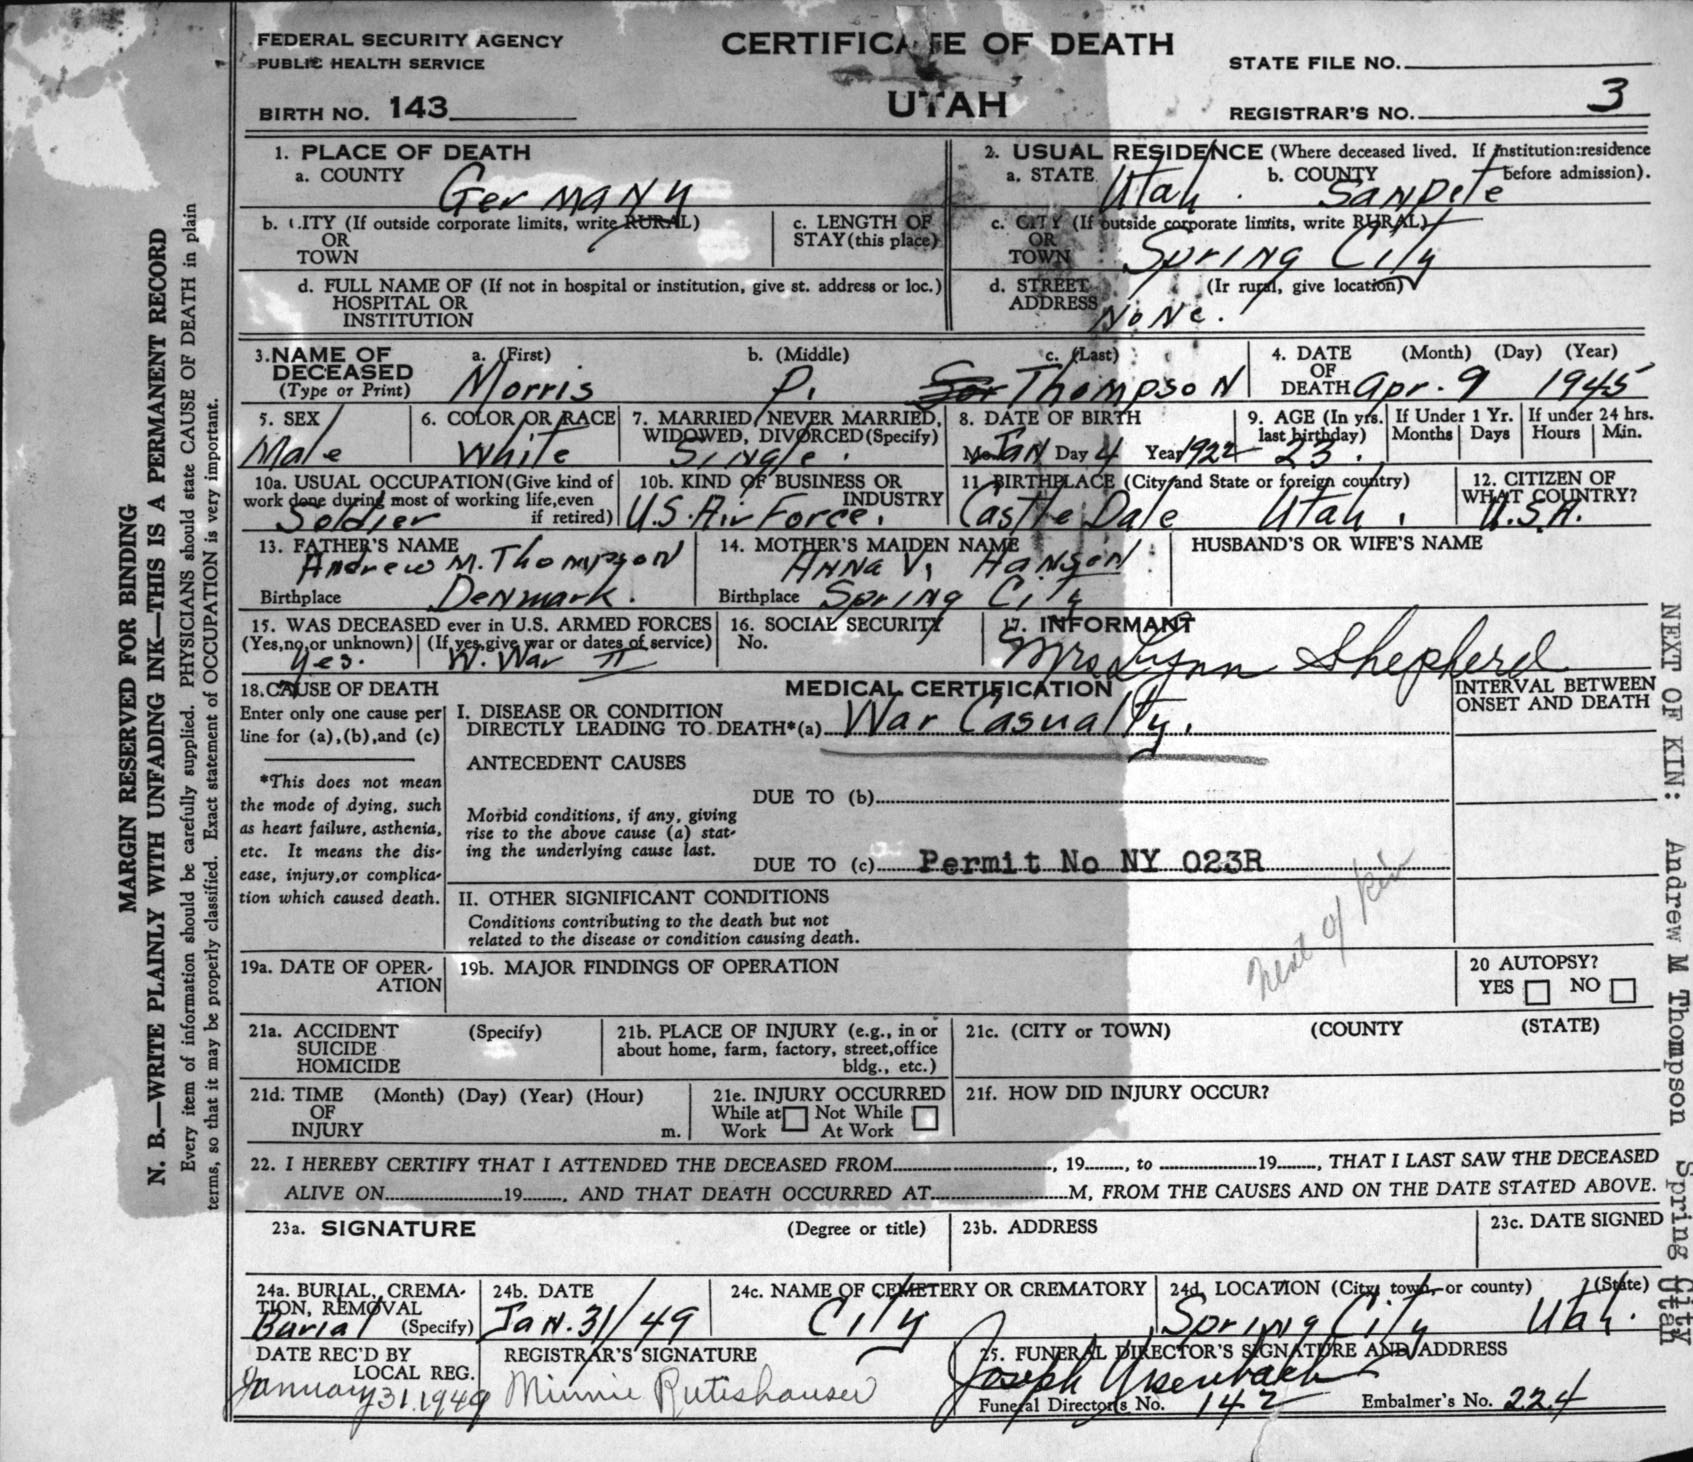 FEDERAL SECURITY AGENCY
PUBLIC HEALTH SERVICE
BIRTH NO. 143
CERTIFICATE OF DEATH
UTAH
STATE FILE NO.
REGISTRAR'S NO. 3
1. PLACE OF DEATH
a. COUNTY Germany
b. CITY (If outside corporate limits, write RURAL)
OR
TOWN
c. LENGTH OF
STAY (this place)
d. FULL NAME OF (If not in hospital or institution, give st. address or loc.)
HOSPITAL OR
INSTITUTION
2. USUAL RESIDENCE (Where deceased lived. If institution:residence
before admission).
a. STATE Utah. b. COUNTY Sanpete
c. CITY (If outside corporate limits, write RURAL)
OR
TOWN Spring City
d. STREET (Ir rural, give location)
ADDRESS None.
3. NAME OF DECEASED a. (First) b. (Middle) c. (Last)
(Type or Print) Morris P. Thompson
4. DATE OF DEATH (Month) (Day) (Year)
Apr. 9 1945
5. SEX
Male
6. COLOR OR RACE
White
7. MARRIED, NEVER MARRIED,
WIDOWED, DIVORCED (Specify)
Single.
8. DATE OF BIRTH
Mo. Jan Day 4 Year 1922
9. AGE (In yrs. last birthday)
23.
If Under 1 Yr.
Months Days
If under 24 hrs.
Hours Min.
10a. USUAL OCCUPATION (Give kind of
work done during most of working life, even
if retired)
Soldier
10b. KIND OF BUSINESS OR
INDUSTRY
U.S. Air Force.
11. BIRTHPLACE (City and State or foreign country)
Castle Dale Utah.
12. CITIZEN OF
WHAT COUNTRY?
U.S.A.
13. FATHER'S NAME
Andrew M. Thompson
Birthplace Denmark.
14. MOTHER'S MAIDEN NAME
Anna V. Hanson
Birthplace Spring City
HUSBAND'S OR WIFE'S NAME
15. WAS DECEASED ever in U.S. ARMED FORCES
(Yes, no, or unknown) (If yes, give war or dates of service)
Yes. W. War II
16. SOCIAL SECURITY
No.
17. INFORMANT
Mrs Lynn Shepherd
18. CAUSE OF DEATH
Enter only one cause per
line for (a), (b), and (c)
*This does not mean
the mode of dying, such
as heart failure, asthenia,
etc. It means the dis-
ease, injury, or complica-
tion which caused death.
MEDICAL CERTIFICATION
INTERVAL BETWEEN
ONSET AND DEATH
I. DISEASE OR CONDITION
DIRECTLY LEADING TO DEATH*(a) War Casualty.
ANTECEDENT CAUSES
DUE TO (b)
Morbid conditions, if any, giving
rise to the above cause (a) stat-
ing the underlying cause last.
DUE TO (c) Permit No NY 023R
II. OTHER SIGNIFICANT CONDITIONS
Conditions contributing to the death but not
related to the disease or condition causing death.
Next of kin
19a. DATE OF OPER-
ATION
19b. MAJOR FINDINGS OF OPERATION
20 AUTOPSY?
YES NO
21a. ACCIDENT (Specify)
SUICIDE
HOMICIDE
21b. PLACE OF INJURY (e.g., in or
about home, farm, factory, street, office
bldg., etc.)
21c. (CITY or TOWN) (COUNTY (STATE)
21d. TIME (Month) (Day) (Year) (Hour)
OF
INJURY m.
21e. INJURY OCCURRED
While at Work Not While At Work
21f. HOW DID INJURY OCCUR?
22. I HEREBY CERTIFY THAT I ATTENDED THE DECEASED FROM , 19 , to 19 , THAT I LAST SAW THE DECEASED
ALIVE ON 19 , AND THAT DEATH OCCURRED AT M, FROM THE CAUSES AND ON THE DATE STATED ABOVE.
23a. SIGNATURE (Degree or title)
23b. ADDRESS
23c. DATE SIGNED
24a. BURIAL, CREMA-
TION, REMOVAL
(Specify)
Burial
24b. DATE
Jan. 31/49
24c. NAME OF CEMETERY OR CREMATORY
City
24d. LOCATION (City, town, or county) (State)
Spring City Utah.
DATE REC'D BY
LOCAL REG.
January 31, 1949
REGISTRAR'S SIGNATURE
Minnie Rutishauser
25. FUNERAL DIRECTOR'S SIGNATURE AND ADDRESS
Joseph
Funeral Director's No. 142 Embalmer's No. 224
MARGIN RESERVED FOR BINDING
N. B.—WRITE PLAINLY WITH UNFADING INK—THIS IS A PERMANENT RECORD
Every item of information should be carefully supplied. PHYSICIANS should state CAUSE OF DEATH in plain
terms, so that it may be properly classified. Exact statement of OCCUPATION is very important.
NEXT OF KIN: Andrew M Thompson Spring City
Utah